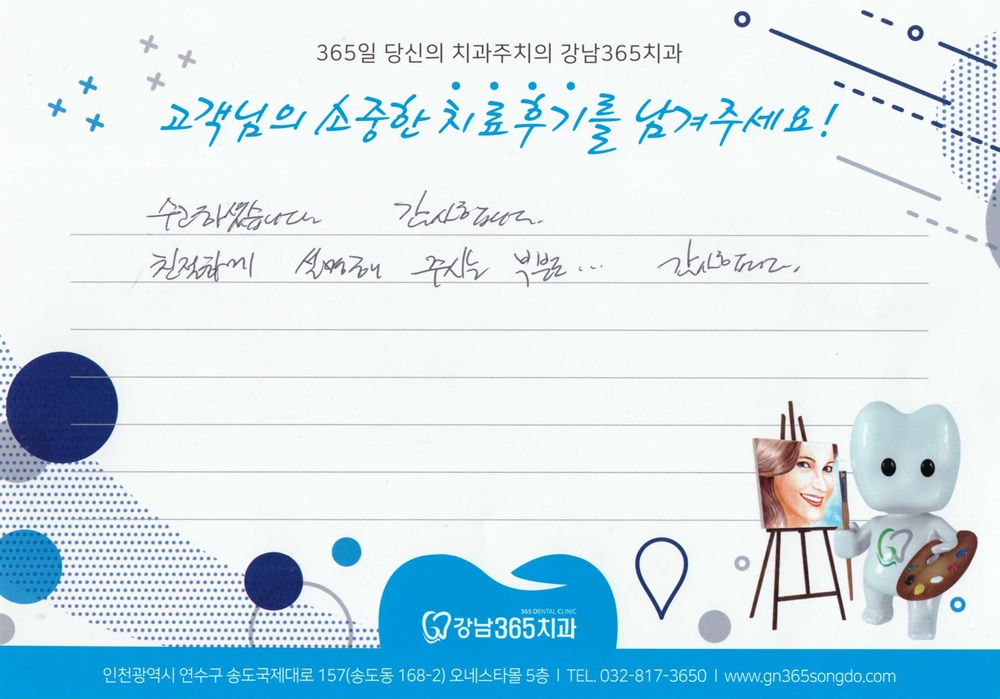 365일 당신의 치과주치의 강남365치과
고객님의 소중한 치료후기를 남겨주세요!
수고하셨습니다. 감사합니다.
친절하게 설명해 주시는 부분... 감사합니다.
365 DENTAL CLINIC
강남365치과
인천광역시 연수구 송도국제대로 157(송도동 168-2) 오네스타몰 5층 | TEL. 032-817-3650 | www.gn365songdo.com